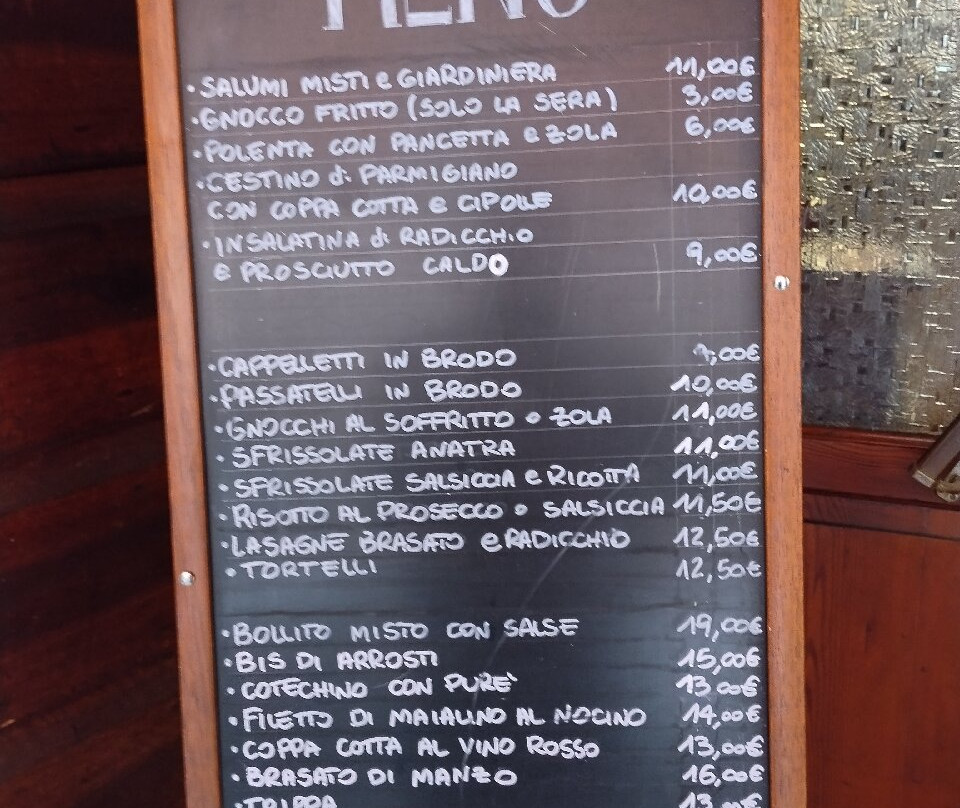 MENÙ
• SALUMI MISTI e GIARDINIERA 11,00€
• GNOCCO FRITTO (SOLO LA SERA) 3,00€
• POLENTA CON PANCETTA e ZOLA 6,00€
• CESTINO di PARMIGIANO
CON COPPA COTTA e CIPOLLE 10,00€
• INSALATINA di RADICCHIO
E PROSCIUTTO CALDO 9,00€
• CAPPELLETTI IN BRODO ,00€
• PASSATELLI IN BRODO 10,00€
• GNOCCHI AL SOFFRITTO e ZOLA 11,00€
• SFRISSOLATE ANATRA 11,00€
• SFRISSOLATE SALSICCIA e RICOTTA 11,00€
• RISOTTO AL PROSECCO e SALSICCIA 11,50€
• LASAGNE BRASATO e RADICCHIO 12,50€
• TORTELLI 12,50€
• BOLLITO MISTO CON SALSE 19,00€
• BIS DI ARROSTI 15,00€
• COTECHINO CON PURE' 13,00€
• FILETTO DI MAIALINO AL NOCINO 14,00€
• COPPA COTTA AL VINO ROSSO 13,00€
• BRASATO DI MANZO 16,00€
• TRIPPA 13,00€